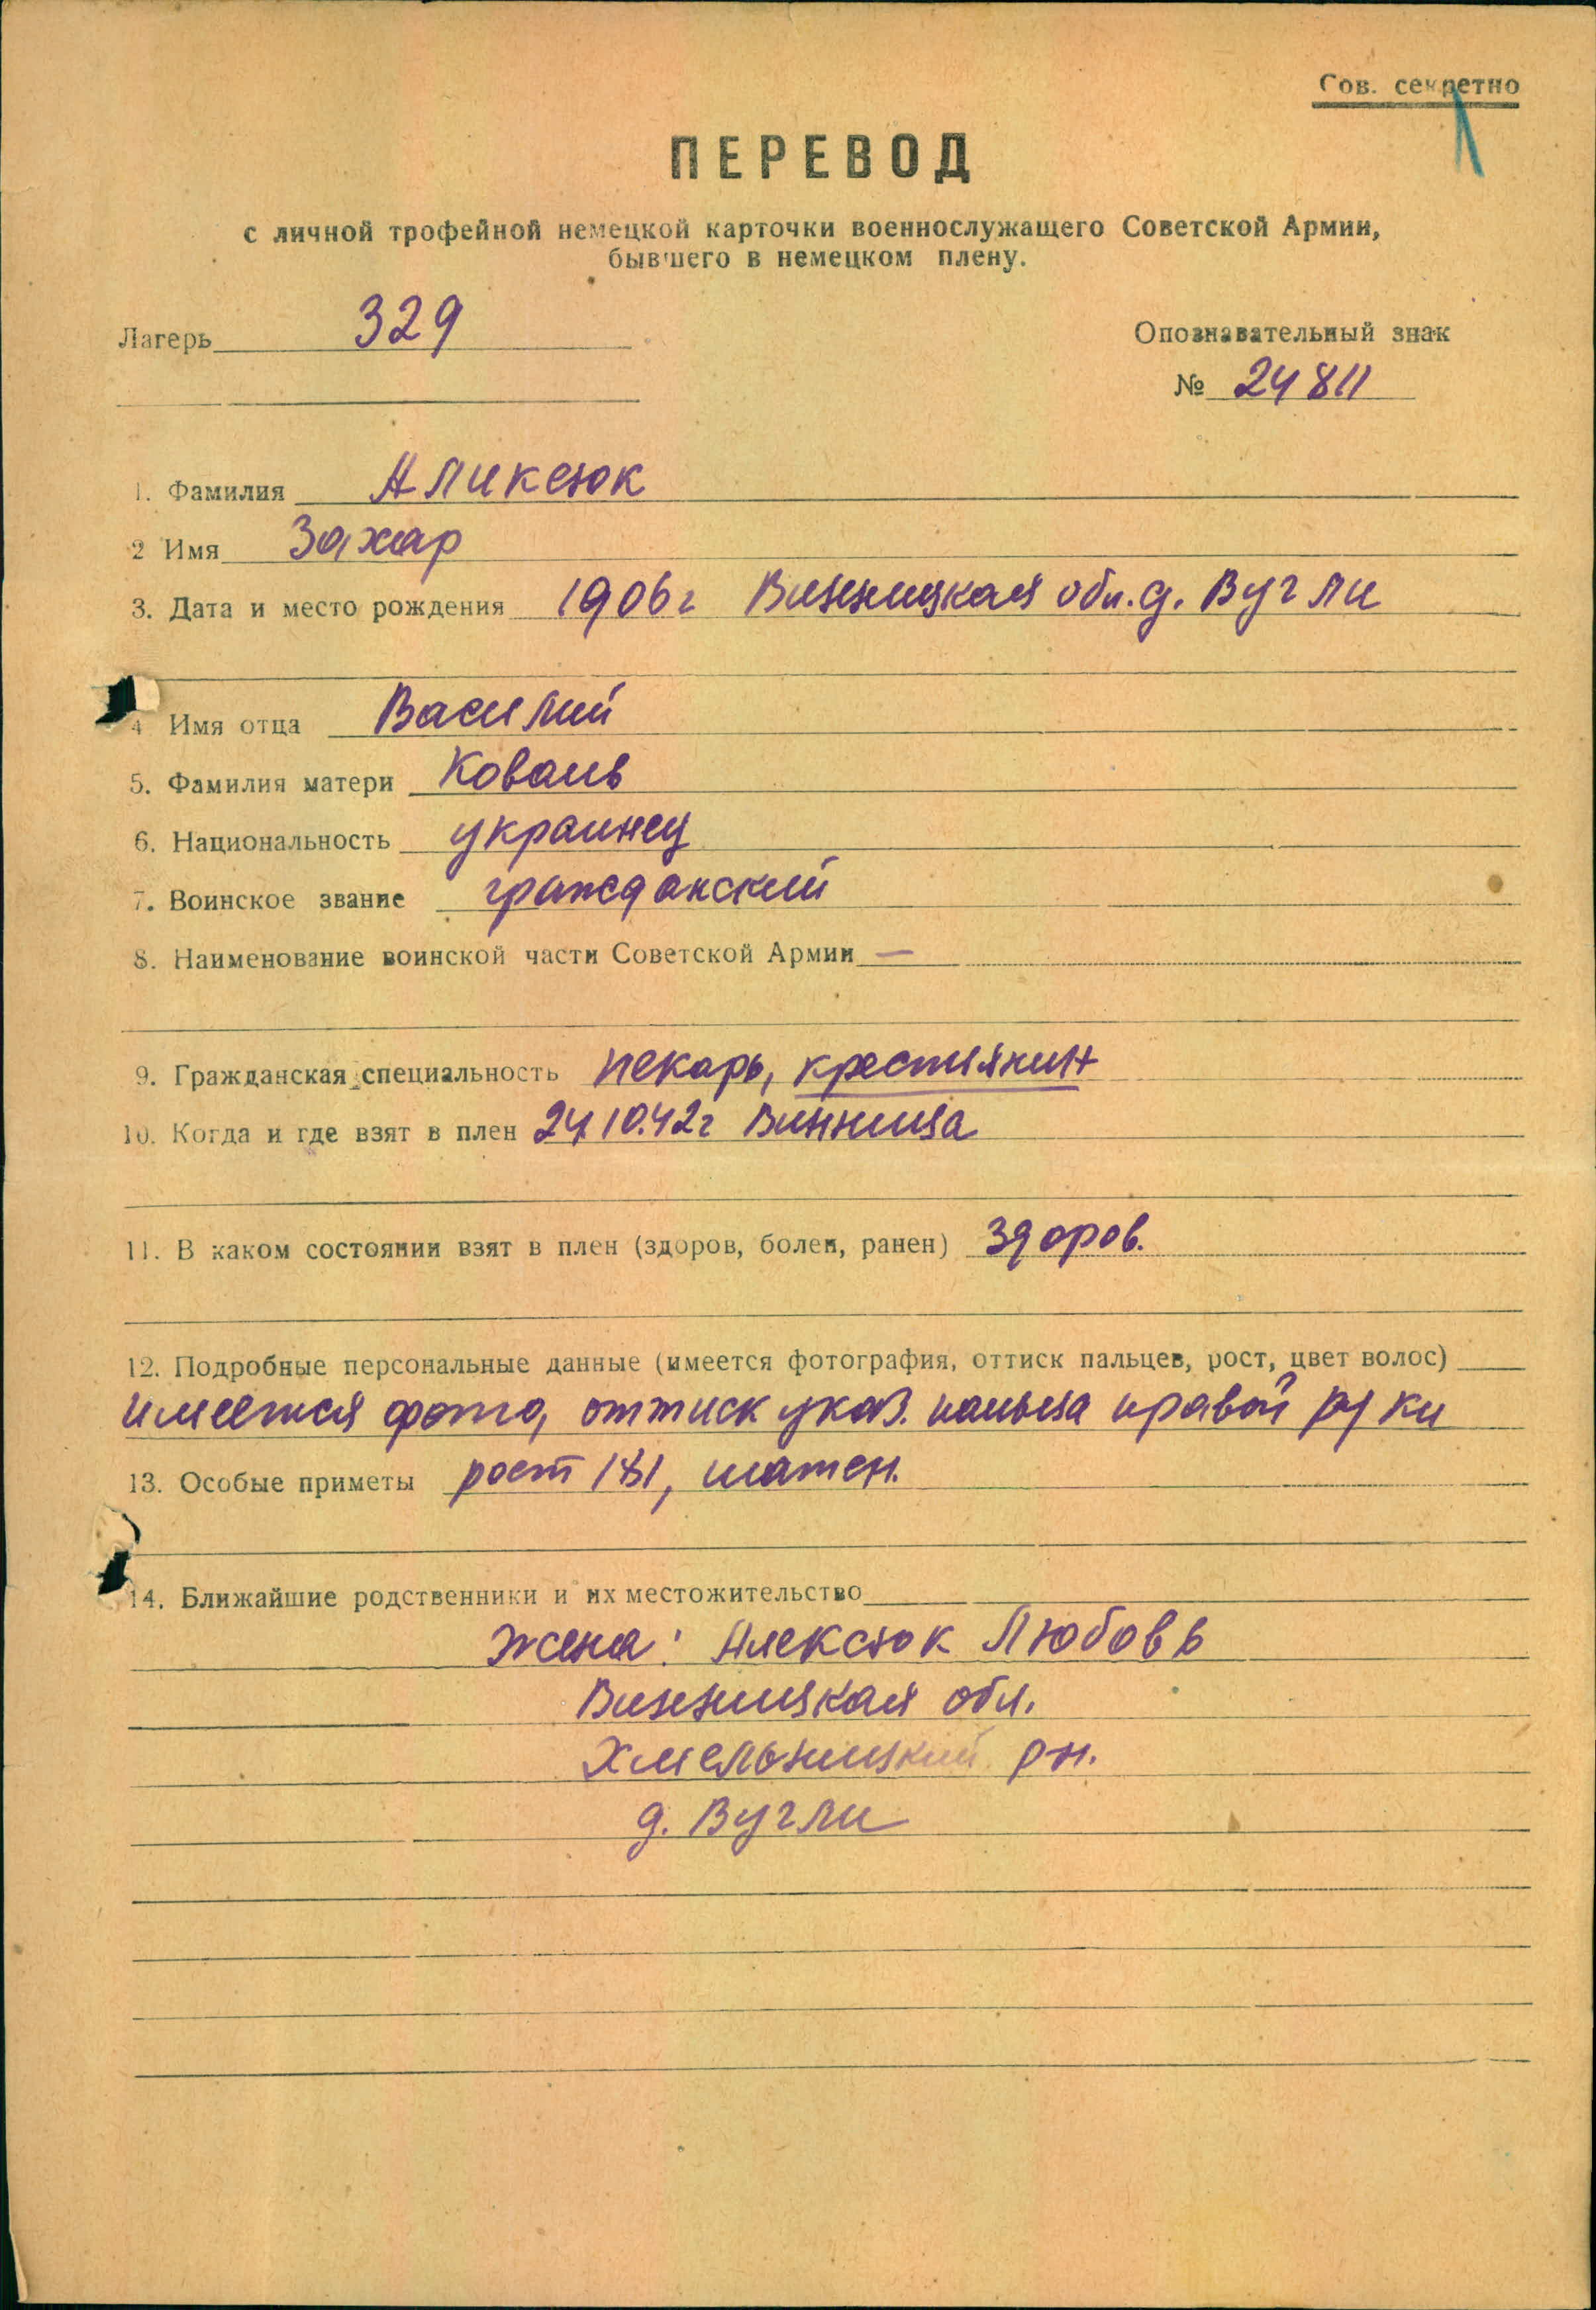 Сов. секретно
ПЕРЕВОД
с личной трофейной немецкой карточки военнослужащего Советской Армии,
бывшего в немецком плену.
Лагерь 329
Опознавательный знак
№ 24811
1. Фамилия Аликсюк
2 Имя Захар
3. Дата и место рождения 1906г Винницкая обл. д. Вугли
4 Имя отца Василий
5. Фамилия матери Коваль
6. Национальность украинец
7. Воинское звание гражданский
8. Наименование воинской части Советской Армии —
9. Гражданская специальность пекарь, крестиянин
10. Когда и где взят в плен 24.10.42г Винница
11. В каком состоянии взят в плен (здоров, болен, ранен) здоров.
12. Подробные персональные данные (имеется фотография, оттиск пальцев, рост, цвет волос)
имеется фото, оттиск указ. пальца правой руки
13. Особые приметы рост 181, шатен.
14. Ближайшие родственники и их местожительство
жена: Алексюк Любовь
Винницкая обл.
Хмельницкий рн.
д. Вугли